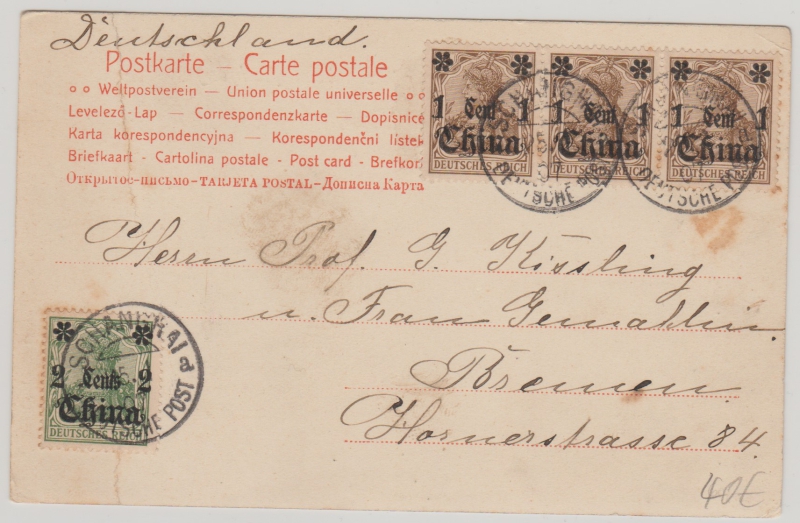 Deutschland.
Postkarte — Carte postale
Weltpostverein — Union postale universelle
Levelező-Lap — Correspondenzkarte — Dopisnice
Karta korespondencyjna — Korespondenční lístek
Briefkaart - Cartolina postale - Post card - Brefkor
Открытое-письмо-TARJETA POSTAL-Дописна Карта
1 Cent 1
China
DEUTSCHES REICH
1 Cent 1
China
DEUTSCHES REICH
1 Cent 1
China
DEUTSCHES REICH
DEUTSCHE
DEUTSCHE
Herrn Prof. G. Kissling
u. Frau Gemahlin.
Bremen
Hornerstrasse 84.
SCHANGHAI d
DEUTSCHE POST
2 Cents 2
China
DEUTSCHES REICH
40€